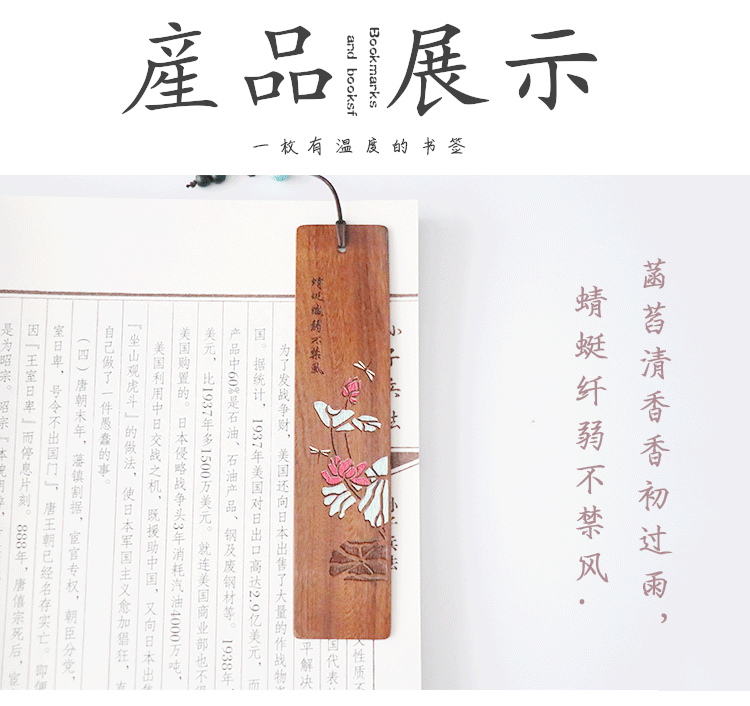 産品展示
Bookmarks
and booksf
一枚有温度的书签
菡萏清香香初过雨，
蜻蜓纤弱不禁风.
蜻蜓纖弱不禁風
孙子兵法
孙子兵法
为了发战争财，美国还向日本出售了大量的作战物
国。据统计，1937年美国对日出口高达2.9亿美元，而
产品中60%是石油、石油产品、钢及废钢材等。1938年
美元，比1937年多1500万美元。就连美国商业部也不得
美国购置的。日本侵略战争头3年消耗汽油4000万吨，
美国利用中日交战之机，既援助中国，又向日本出售
『坐山观虎斗』的做法，使日本军国主义愈加猖狂，直
自己做了一件愚蠢的事。
（四）唐朝末年，藩镇割据，宦官专权，朝臣分党，
室日卑，号令不出国门』，唐王朝已经名存实亡。即便
因『王室日卑』而停息片刻。888年，唐僖宗死后，宦
是为昭宗。昭宗『体貌明